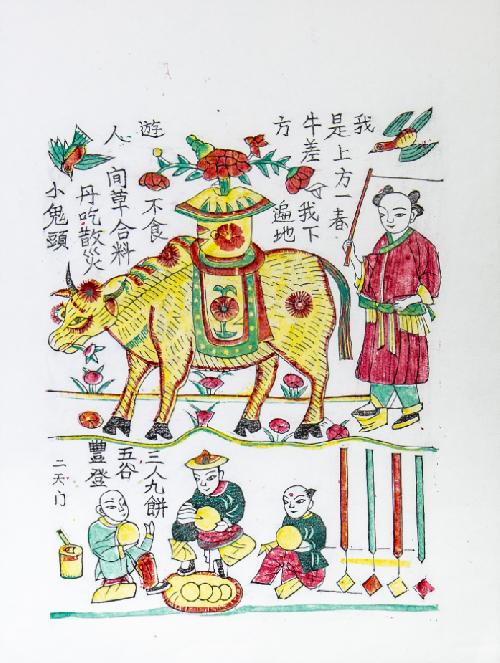 我
是上方一春
牛差我下
方遍地
遊不食
人间草合料
丹吃散災
小鬼頭
三人九餅
五谷
豐登
二天门